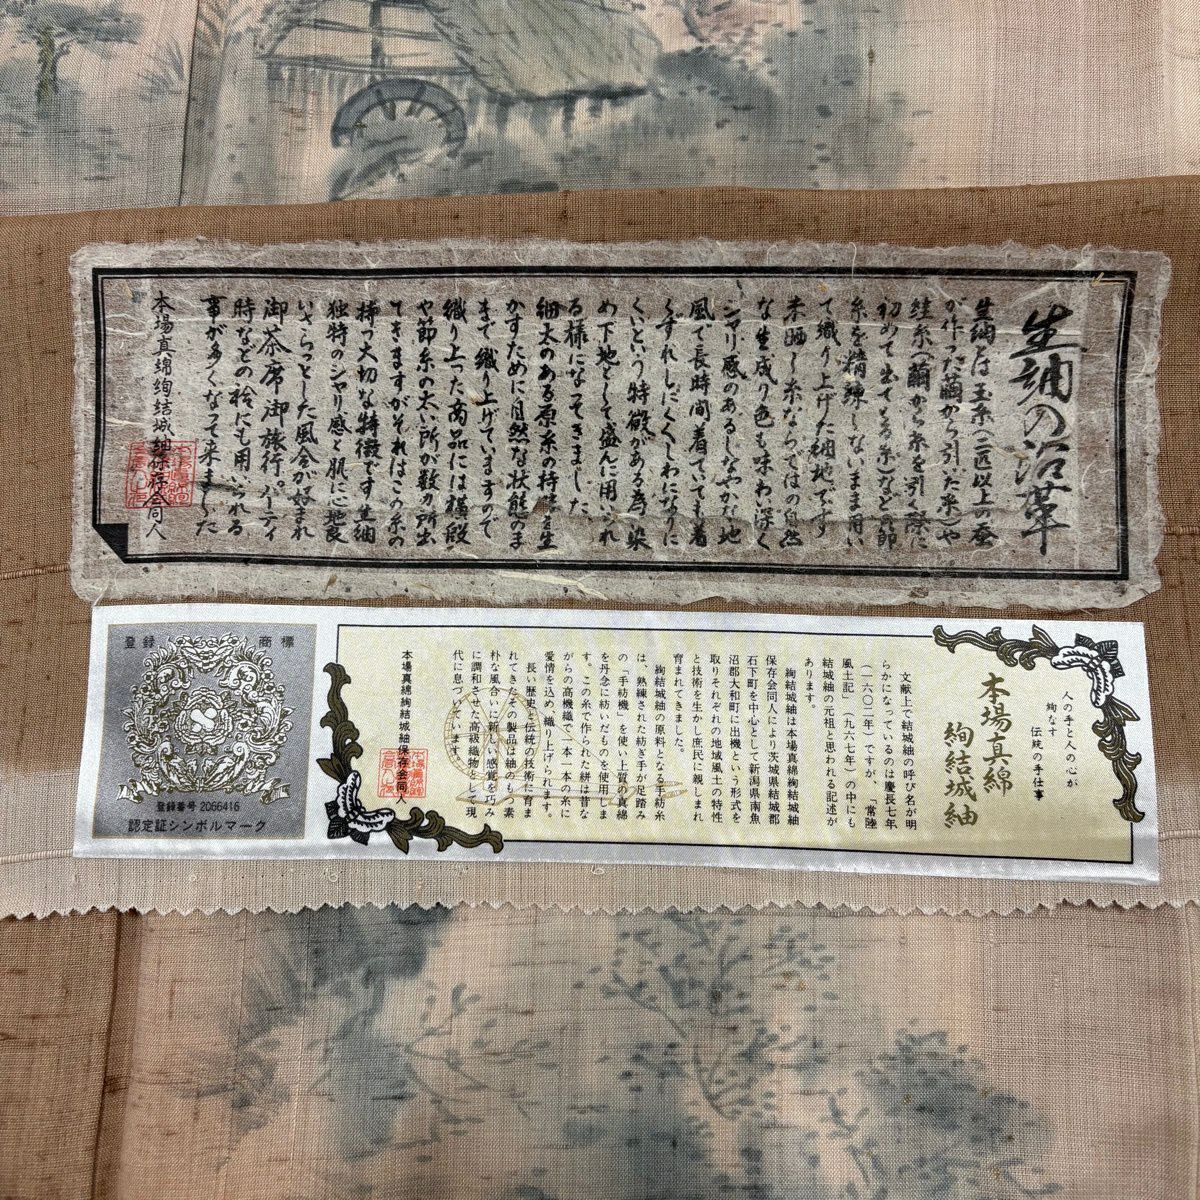 生紬の沿革
生紬は玉糸(二匹以上の蚕
が作った繭から引いた糸)や
絓糸(繭から糸を引く際に
初めて出てくる糸)など真節
糸を精練しないまま用い
て織り上げた紬地です
未晒し糸ならではの自然
な生成り色も味わい深く
シャリ感のあるしなやかな地
風で長時間着ていても着
くずれしにくくしわになりに
くいという特徴がある為、染
め下地として盛んに用いられ
る様になってきました。
細太のある原糸の特徴を生
かすために自然な状態のま
まで織り上げていますので
織り上った商品には横段
や節糸の太い所が数カ所出
てきますがそれはこの糸の
持つ大切な特徴です生紬
独特のシャリ感と肌に地良
いさらっとした風合が好まれ
御茶席、御旅行、パーティ
時などの袷にも用いられる
事が多くなって来ました
本場真綿絢結城紬保存会同人
人の手と人の心が
絢なす
伝統の手仕事
本場真綿
絢結城紬
文献上で結城紬の呼び名が明
らかになっているのは慶長七年
(一六〇二年)ですが、「常陸
風土記」(九六七年)の中にも
結城紬の元祖と思われる記述が
あります。
絢結城紬は本場真綿絢結城紬
保存会同人により茨城県結城郡
石下町を中心として新潟県南魚
沼郡大和町に出機という形式を
取りそれぞれの地域風土の特性
と技術を生かし庶民に親しまれ
育まれてきました。
絢結城紬の原料となる手紡糸
は、熟練された紡ぎ手が足踏み
の「手紡機」を使い上質の真綿
を丹念に紡いだものを使用しま
す。この糸で作られた絣は昔な
がらの高機織で一本一本の糸に
愛情を込め、織り上げられます。
長い歴史と伝統の技術に育ま
れてきたその製品は紬のもつ素
朴な風合いに新しい感覚を巧み
に調和させた高級織物として現
代に息づいています。
本場真綿絢結城紬保存会同人
登録 商標
登録番号 2066416
認定証シンボルマーク